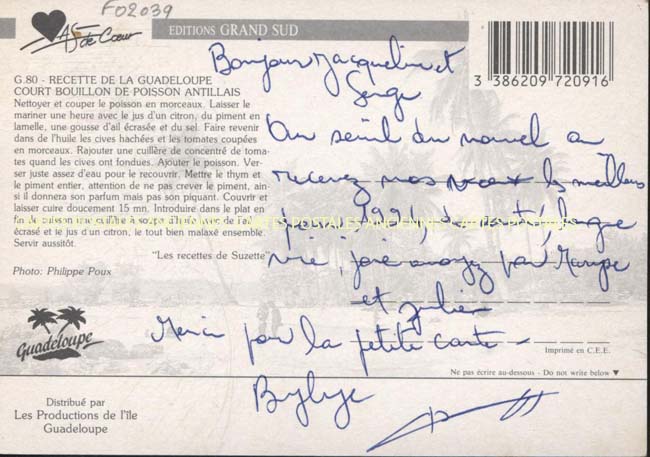 F02039
AS de Cœur
EDITIONS GRAND SUD
3 386209 720916
G.80 - RECETTE DE LA GUADELOUPE
COURT BOUILLON DE POISSON ANTILLAIS
Nettoyer et couper le poisson en morceaux. Laisser le
mariner une heure avec le jus d'un citron, du piment en
lamelle, une gousse d'ail écrasée et du sel. Faire revenir
dans de l'huile les cives hachées et les tomates coupées
en morceaux. Rajouter une cuillère de concentré de toma-
tes quand les cives ont fondues. Ajouter le poisson. Ver-
ser juste assez d'eau pour le recouvrir. Mettre le thym et
le piment entier, attention de ne pas crever le piment, ain-
si il donnera son parfum mais pas son piquant. Couvrir et
laisser cuire doucement 15 mn. Introduire dans le plat en
fin de cuisson une cuillère à soupe d'huile avec de l'ail
écrasé et le jus d'un citron, le tout bien malaxé ensemble.
Servir aussitôt.
"Les recettes de Suzette"
Photo: Philippe Poux
Guadeloupe
Distribué par
Les Productions de l'île
Guadeloupe
Bonjour Jacqueline et
Serge
Au seuil du nouvel an
recevez nos vœux les meilleurs
pour 1991, santé, longue
vie, joie
et Julien
Merci pour la petite carte
Imprimé en C.E.E.
Ne pas écrire au-dessous - Do not write below
Bye bye
CARTES POSTALES ANCIENNES CARTES POSTALES